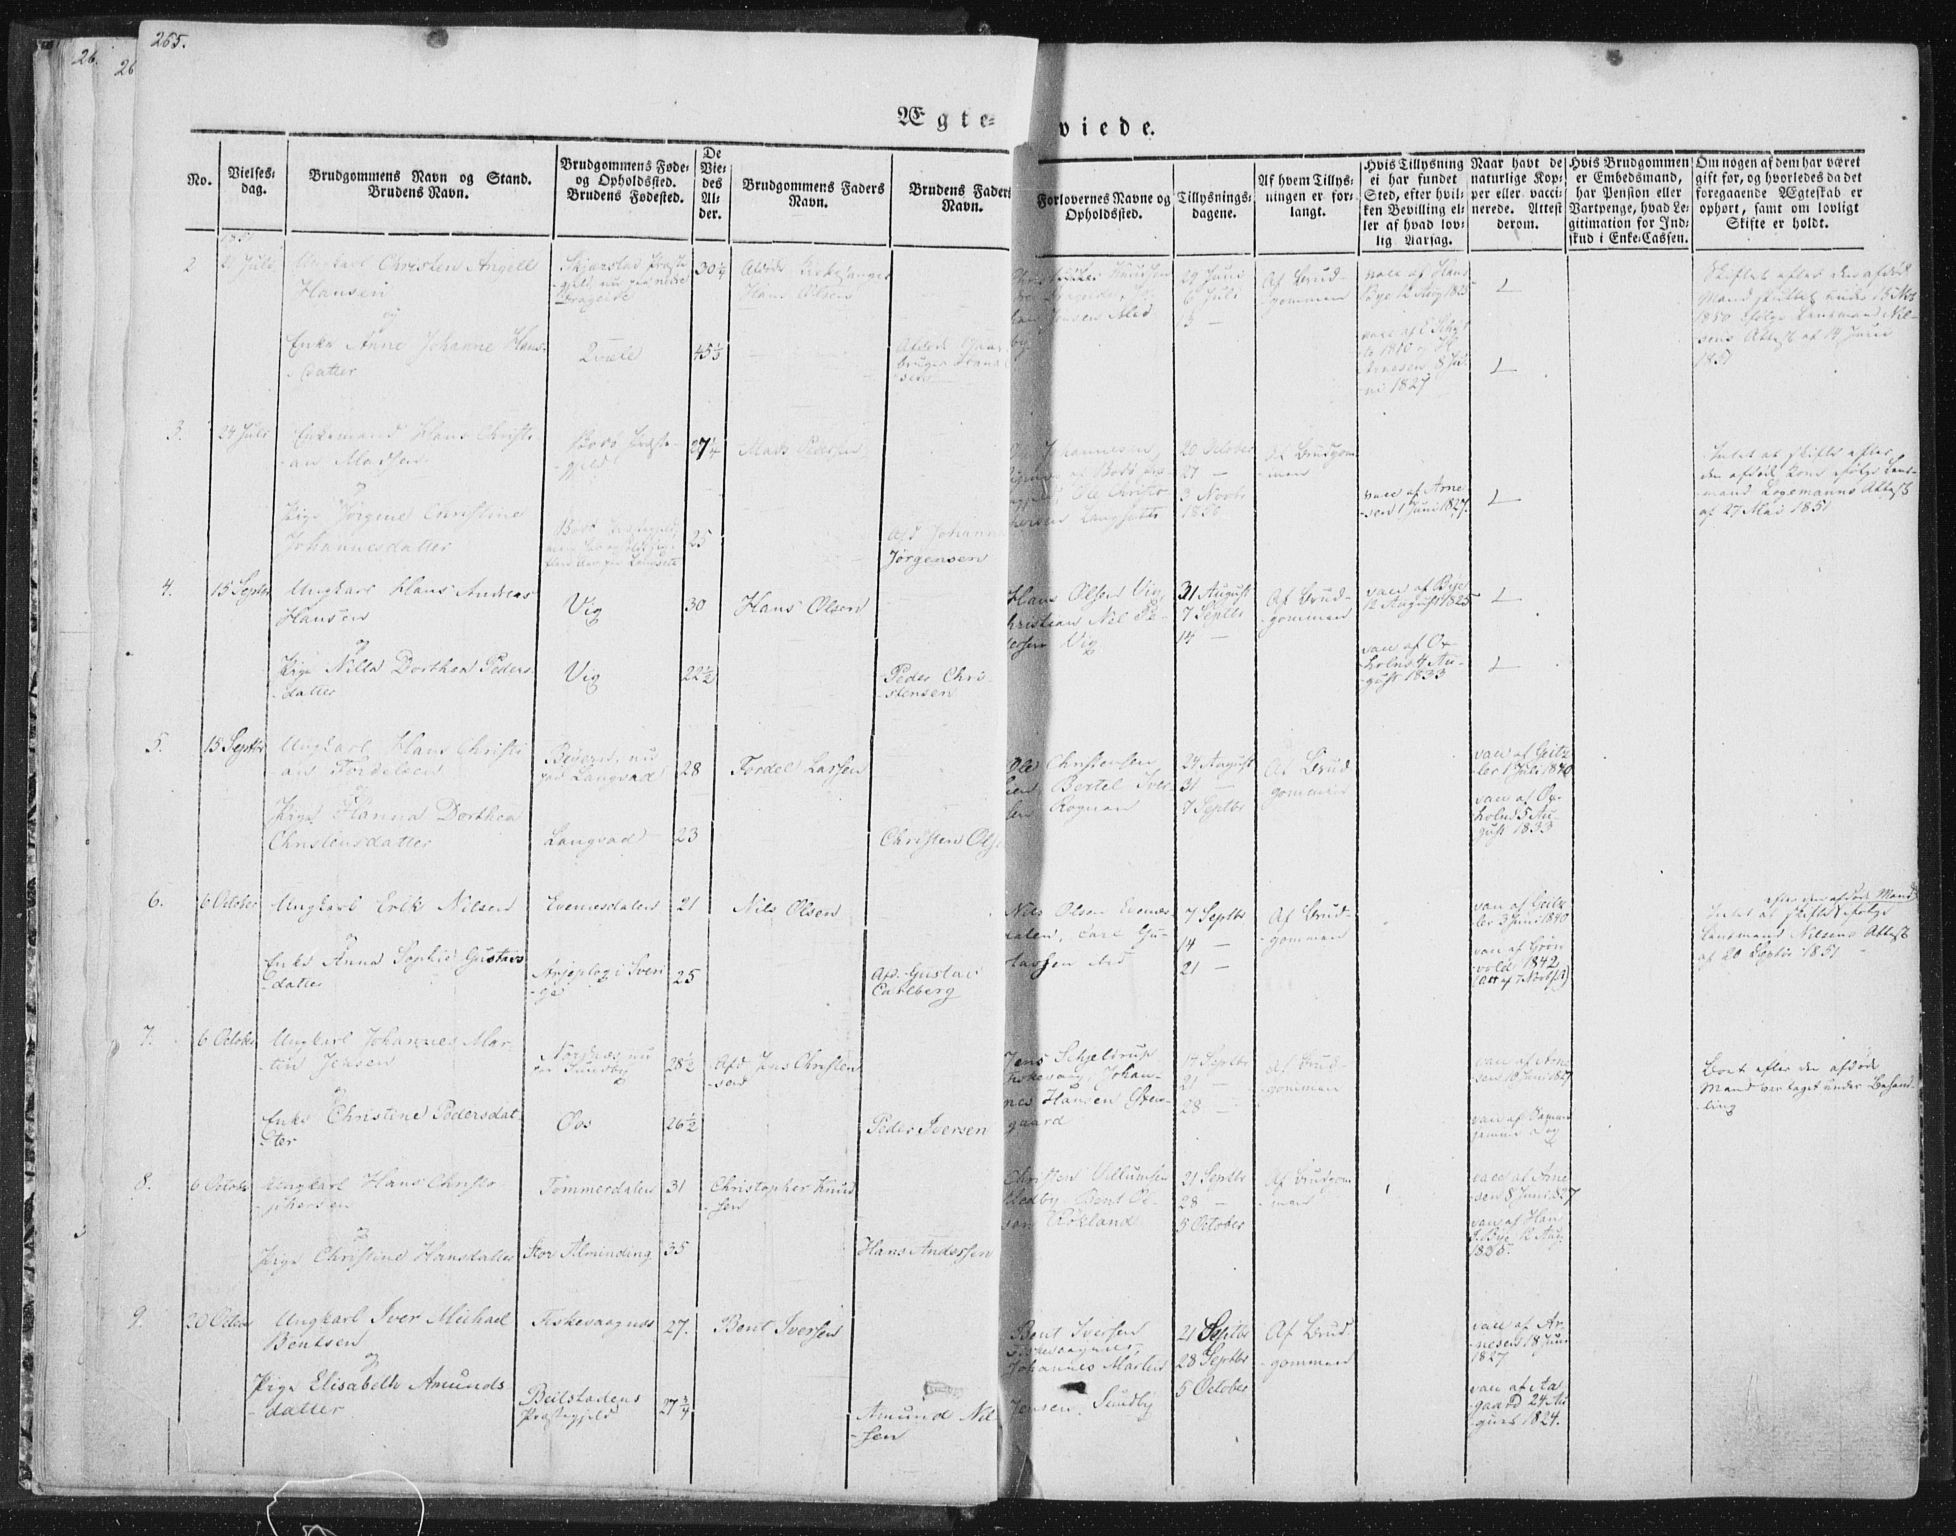 265.
26.
26
Ægte-
viede.
No.
Vielses-
dag.
Brudgommens Navn og Stand.
Brudens Navn.
Brudgommens Føde-
og Opholdssted.
Brudens Fødested.
De
Vie-
des
Al-
der.
Brudgommens Faders
Navn.
Brudens Faders
Navn.
Forlovernes Navne og
Opholdssted.
Tillysnings-
dagene.
Af hvem Tillys-
ningen er for-
langt.
Hvis Tillysning
ei har fundet
Sted, efter hvil-
ken Bevilling el-
ler af hvad lov-
lig Aarsag.
Naar havt de
naturlige Kop-
per eller vacci-
nerede. Attest
derom.
Hvis Brudgommen
er Embedsmand,
har Pension eller
Vartpenge, hvad Le-
gitimation for Ind-
skud i Enke-Cassen.
Om nogen af dem har været
gift før, og hvorledes da det
foregaaende Ægteskab er
ophørt, samt om lovligt
Skifte er holdt.
2
Juli
Ungkarl Christen Angell
Hansen
og
Enke Anne Johanne Hans-
datter
Skjerstad Præste-
gjeld, nu
45½
Hans Olsen
29 Juni
6 Juli
13 —
Af Brud-
gommen
vacc af Hans
Bye 12 Aug 1825
Arnesen 8 Ju-
ni 1827
Skiftet efter den afdøde
Mand sluttet under 15 Nov
1850 ifølge Lensmand Nil-
sens Attest af 14 Juni
1851
3.
24 Juli
Enkemand Hans Christi-
an Madsen
og
Pige Jørgine Christine
Johannesdatter
Bodø Præste-
gjeld
27¼
25
Mads Pedersen
Afd Johannes
Jørgensen
Johannesen
20 October
27 —
3 Novbr
1850
Af Brudgom-
men
vacc af Arne-
sen 1 Juni 1827.
Intet at skifte efter
den afdøde Kone ifølge Lens-
mand Logemanns Attest
af 27 Mai 1851
4.
15 Septbr
Ungkarl Hans Andreas
Hansen
og
Pige Nilla Dorthea Peders-
datter
Vig
Vig
30
22½
Hans Olsen
Peder Chri-
stensen
Hans Olsen Vig,
Christian Nil Pe-
dersen Vig
31 August
7 Septbr
14 —
Af Brud-
gommen
vacc af Bye
12 August 1825
vacc af Ox-
holm 4 Au-
gust 1833
5.
15 Septbr
Ungkarl Hans Christi-
an Tordelsen
og
Pige Hanna Dorthea
Christensdatter
Beveren, nu
paa Langvad
Langvad
28
23
Tordel Larsen
Christen Ols
Ole Christensen
Bertel Iver-
sen Rognan
24 August
31 —
7 Septbr
Af Brud-
gommen
vacc af Geitz-
ler 1 Juli 1840
vacc af Ox-
holm 5 Au-
gust 1833
6.
6 October
Ungkarl Erik Nilsen
og
Enke Anna Sophie Gustavs-
datter
Evenesdalen
Arjeplog i Sveri-
ge
21
25
Nils Olsen
Afd. Gustav
Carlberg
Nils Olsen Evenes-
dalen, Carl Gu-
stavsen
7 Septbr
14 —
21 —
Af Brud-
gommen
vacc af Geitz-
ler 3 Juni 1840
vacc af Grøn-
vold 1842
efter den afdøde Mand
Intet at skifte ifølge
Lensmand Nilsens Attest
af 20 Septbr 1851
7.
6 October
Ungkarl Johannes Mar-
tin Jensen
og
Enke Christine Pedersdat-
ter
Norsknæs, nu
paa Sundby
Oos
28½
26½
Afd Jens Christen-
sen
Peder Iversen
Jens Schjeldrup
Fiskevaag, Johan-
nes Hansen Øsen-
gaard
14 Septbr
21 —
28 —
Af Brud-
gommen
vacc af Arne-
sen 18 Juni 1827
Boet efter den afdøde
Mand vertaget under Behand-
ling
8.
6 October
Ungkarl Hans Christo-
phersen
og
Pige Christine Hansdatter
Tømmerdalen
Stor Alminding
31
35
Christopher Knud-
sen
Hans Andersen
Christen Villumsen
Medby, Bent Ol-
sen Røkland
21 Septbr
28 —
5 October
Af Brudgom-
men
vacc af Arne-
sen 8 Juni 1827
vacc af Han
s Bye 12 Aug
1825.
9.
20 Octobr
Ungkarl Iver Michael
Bentsen
og
Pige Elisabeth Amunds-
datter
Fiskevaagnes
Beitstadens
Præstegjeld
27.
27¾
Bent Iversen
Amund Nil-
sen
Bent Iversen
Fiskevaagnes,
Johannes Martin
Jensen Sundby
21 Septbr
28 Septbr
5 October
Af Brud-
gommen
vacc af Ar-
nesen 18 Juni
1827
vacc af Aa-
gaard 24 Au-
gust 1824.